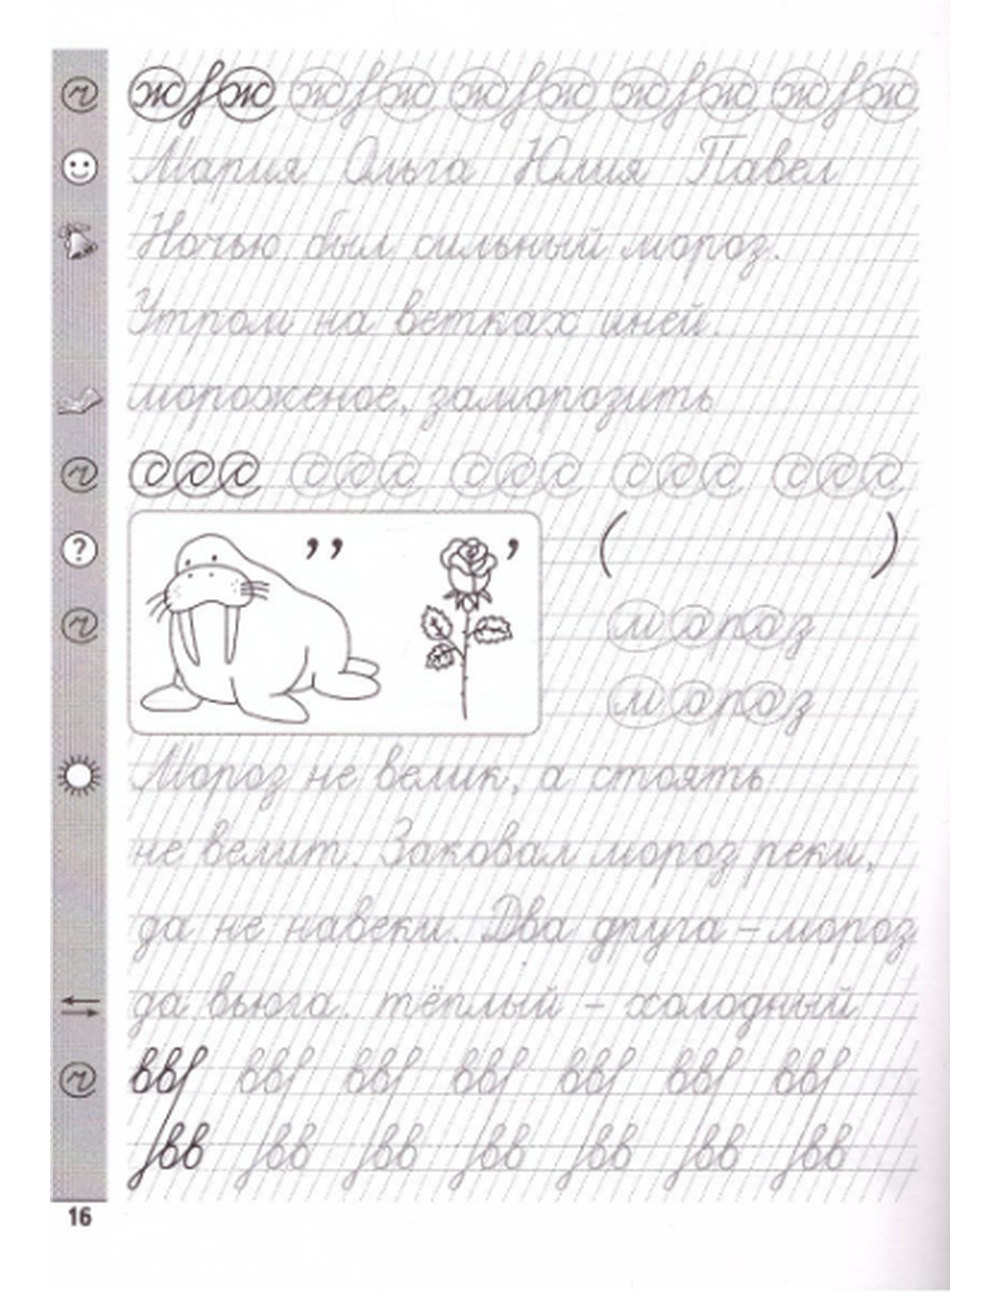 ж ж ж ж ж ж ж ж ж ж
Мария Ольга Юлия Павел
Ночью был сильный мороз.
Утром на ветках иней.
мороженое, заморозить
ссс ссс ссс ссс ссс
,, , ( )
?
мороз
мороз
Мороз не велик, а стоять
не велит. Заковал мороз реки,
да не навеки. Два друга – мороз
да вьюга. тёплый – холодный
вв вв вв вв вв вв вв
вв вв вв вв вв вв вв
16